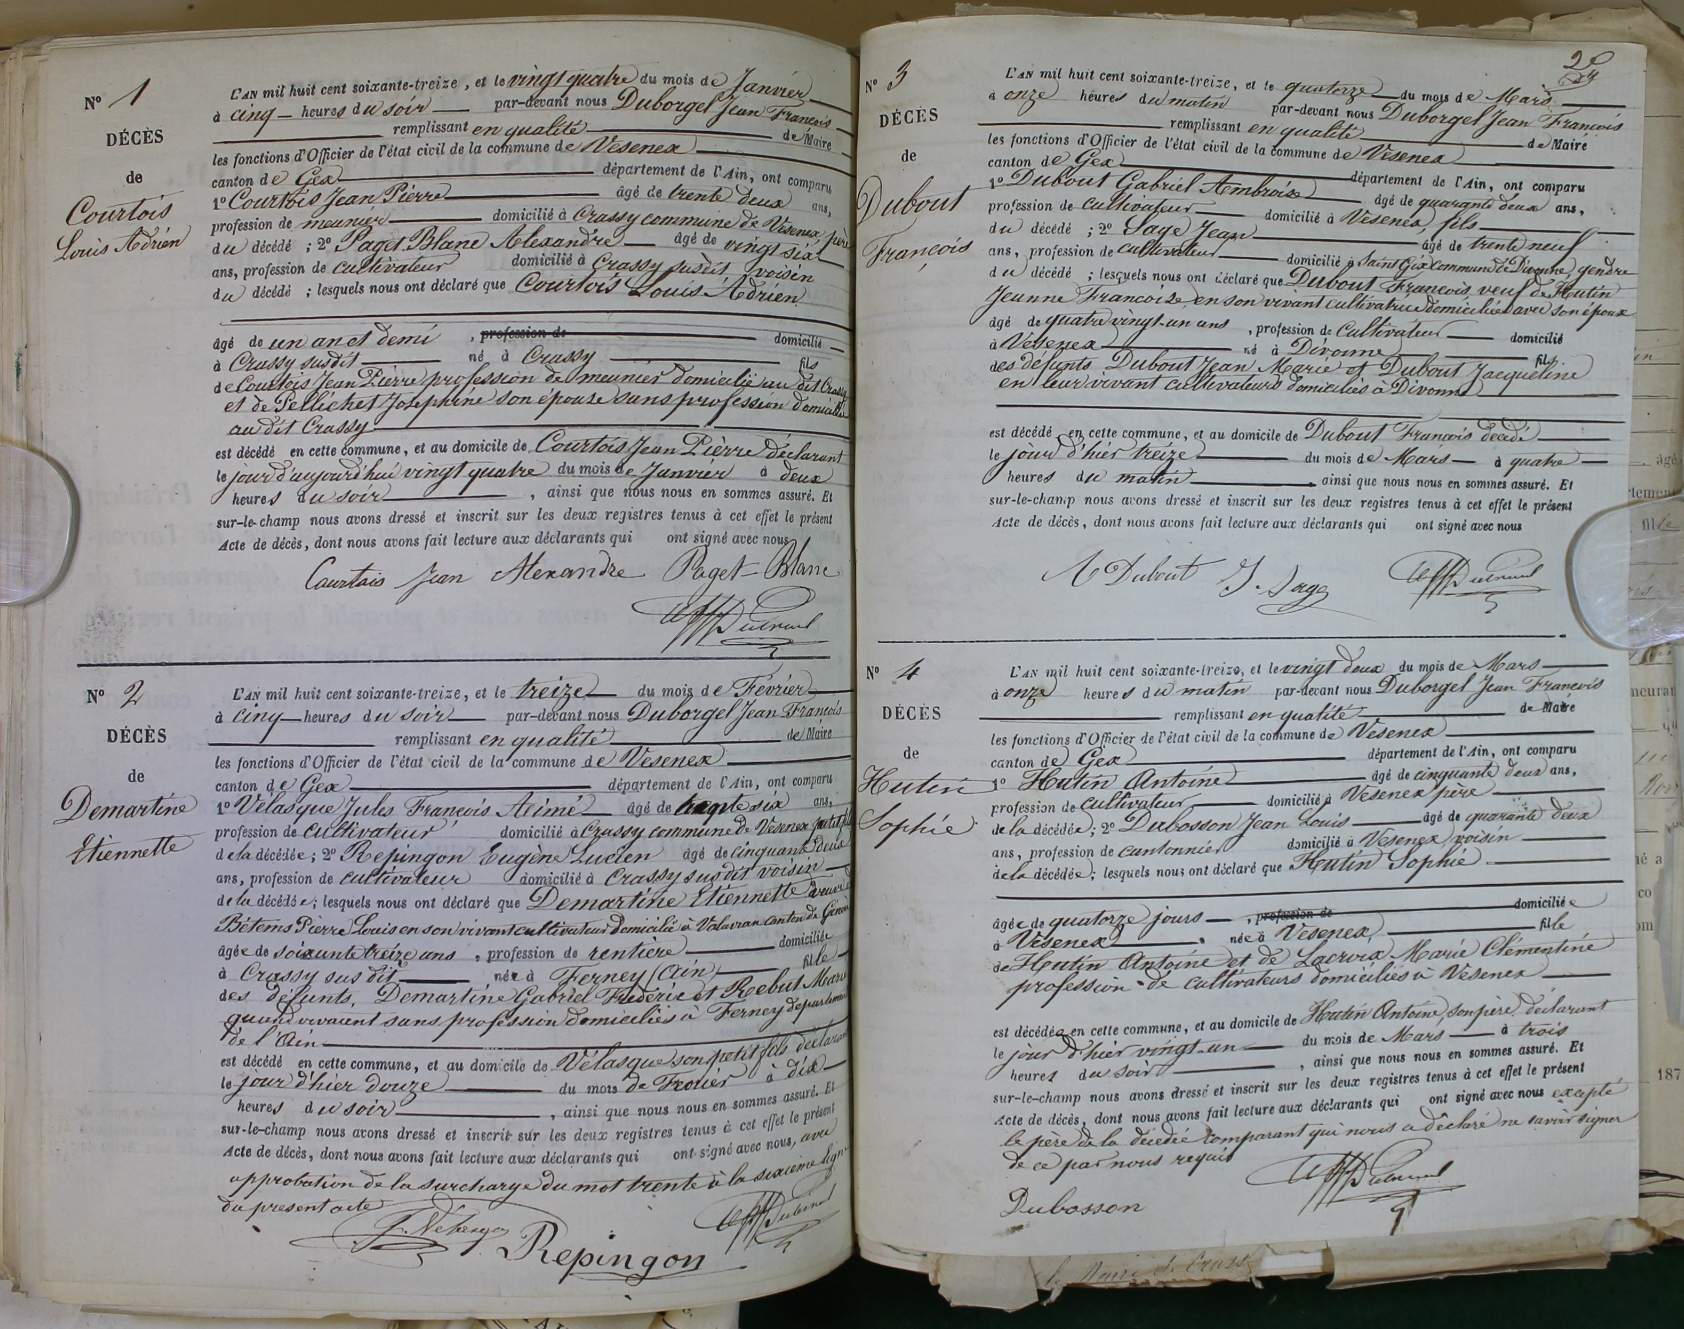 N° 1
DÉCÈS
de
Courtois
Louis Adrién
L'AN mil huit cent soixante-treize, et le vingt quatre du mois de Janvier
à cinq heures du soir par-devant nous Duborgel Jean François
remplissant en qualité de Maire
les fonctions d'Officier de l'état civil de la commune de Vesenex
canton de Gex département de l'Ain, ont comparu
1° Courtois Jean Pierre âgé de trente deux ans,
profession de meunier domicilié à Crassy commune de Vesenex, père
du décédé ; 2° Paget Blanc Alexandre âgé de vingt six
ans, profession de cultivateur domicilié à Crassy susdit, voisin
du décédé ; lesquels nous ont déclaré que Courtois Louis Adrién
âgé de un an et demi , profession de domicilié
à Crassy susdit né à Crassy fils
de Courtois Jean Pierre profession de meunier domicilié au dit Crassy
et de Pellichet Joséphine son épouse sans profession domiciliée
au dit Crassy
est décédé en cette commune, et au domicile de Courtois Jean Pièrre déclarant
le jour d'aujourd'hui vingt quatre du mois de Janvier à deux
heures du soir , ainsi que nous nous en sommes assuré. Et
sur-le-champ nous avons dressé et inscrit sur les deux registres tenus à cet effet le présent
Acte de décès, dont nous avons fait lecture aux déclarants qui ont signé avec nous
Courtois Jean Alexandre Paget-Blanc
N° 2
DÉCÈS
de
Demartine
Etiennette
L'AN mil huit cent soixante-treize, et le treize du mois de Février
à cinq heures du soir par-devant nous Duborgel Jean François
remplissant en qualité de Maire
les fonctions d'Officier de l'état civil de la commune de Vesenex
canton de Gex département de l'Ain, ont comparu
1° Velasque Jules François Aimé âgé de trente six ans,
profession de cultivateur domicilié à Crassy commune de Vesenex petit fils
de la décédée ; 2° Repingon Eugène Lucien âgé de cinquante deux
ans, profession de cultivateur domicilié à Crassy susdit voisin
de la décédée ; lesquels nous ont déclaré que Demartine Etiennette veuve
Bétems Pierre Louis en son vivant cultivateur domicilié à Valavran canton de Genève
âgée de soixante treize ans , profession de rentière domiciliée
à Crassy susdit née à Ferney (Ain) fille
des défunts, Demartine Gabriel Fréderic et Rebut Marie
quand vivaient sans profession domiciliés à Ferney departement
de l'Ain
est décédé en cette commune, et au domicile de Vélasque son petit fils déclarant
le jour d'hier douze du mois de Frévier à dix
heures du soir , ainsi que nous nous en sommes assuré. Et
sur-le-champ nous avons dressé et inscrit sur les deux registres tenus à cet effet le présent
Acte de décès, dont nous avons fait lecture aux déclarants qui ont signé avec nous, avec
approbation de la surcharge du mot trente à la sixième ligne
du present acte
Repingon
N° 3
DÉCÈS
de
Dubout
François
L'AN mil huit cent soixante-treize, et le quatorze du mois de Mars
à onze heures du matin par-devant nous Duborgel Jean François
remplissant en qualité de Maire
les fonctions d'Officier de l'état civil de la commune de Vesenex
canton de Gex département de l'Ain, ont comparu
1° Dubout Gabriel Ambroise âgé de quarante deux ans,
profession de cultivateur domicilié à Vesenex, fils
du décédé ; 2° Sage Jean âgé de trente neuf
ans, profession de cultivateur domicilié à Saint Gix commune de Divonne, gendre
du décédé ; lesquels nous ont déclaré que Dubout François veuf de Hutin
Jeanne Francoise, en son vivant cultivatrice domiciliée avec son époux
âgé de quatre vingt-un ans , profession de cultivateur domicilié
à Vesenex né à Divonne fils
des défunts Dubout Jean Marie et Dubout Jacqueline
en leur vivant cultivateurs domiciliés à Divonne
est décédé en cette commune, et au domicile de Dubout François décédé
le jour d'hier treize du mois de Mars à quatre
heures du matin ainsi que nous nous en sommes assuré. Et
sur-le-champ nous avons dressé et inscrit sur les deux registres tenus à cet effet le présent
Acte de décès, dont nous avons fait lecture aux déclarants qui ont signé avec nous
A Dubout J. Sage
N° 4
DÉCÈS
de
Hutin
Sophie
L'AN mil huit cent soixante-treize, et le vingt deux du mois de Mars
à onze heures du matin par-devant nous Duborgel Jean François
remplissant en qualité de Maire
les fonctions d'Officier de l'état civil de la commune de Vesenex
canton de Gex département de l'Ain, ont comparu
1° Hutin Antoine âgé de cinquante deux ans,
profession de cultivateur domicilié à Vesenex père
de la décédée ; 2° Dubosson Jean Louis âgé de quarante deux
ans, profession de cantonnier domicilié à Vesenex, voisin
de la décédée ; lesquels nous ont déclaré que Hutin Sophie
âgée de quatorze jours , profession de domiciliée
à Vesenex , née à Vesenex, fille
de Hutin Antoine et de Lacroix Marie Clémentine
profession de cultivateurs domiciliés à Vesenex
est décédée en cette commune, et au domicile de Hutin Antoine, son père, déclarant
le jour d'hier vingt-un du mois de Mars à trois
heures du soir , ainsi que nous nous en sommes assuré. Et
sur-le-champ nous avons dressé et inscrit sur les deux registres tenus à cet effet le présent
Acte de décès, dont nous avons fait lecture aux déclarants qui ont signé avec nous excepté
le père de la décédée comparant qui nous a déclaré ne savoir signer
de ce par nous requis
Dubosson
187